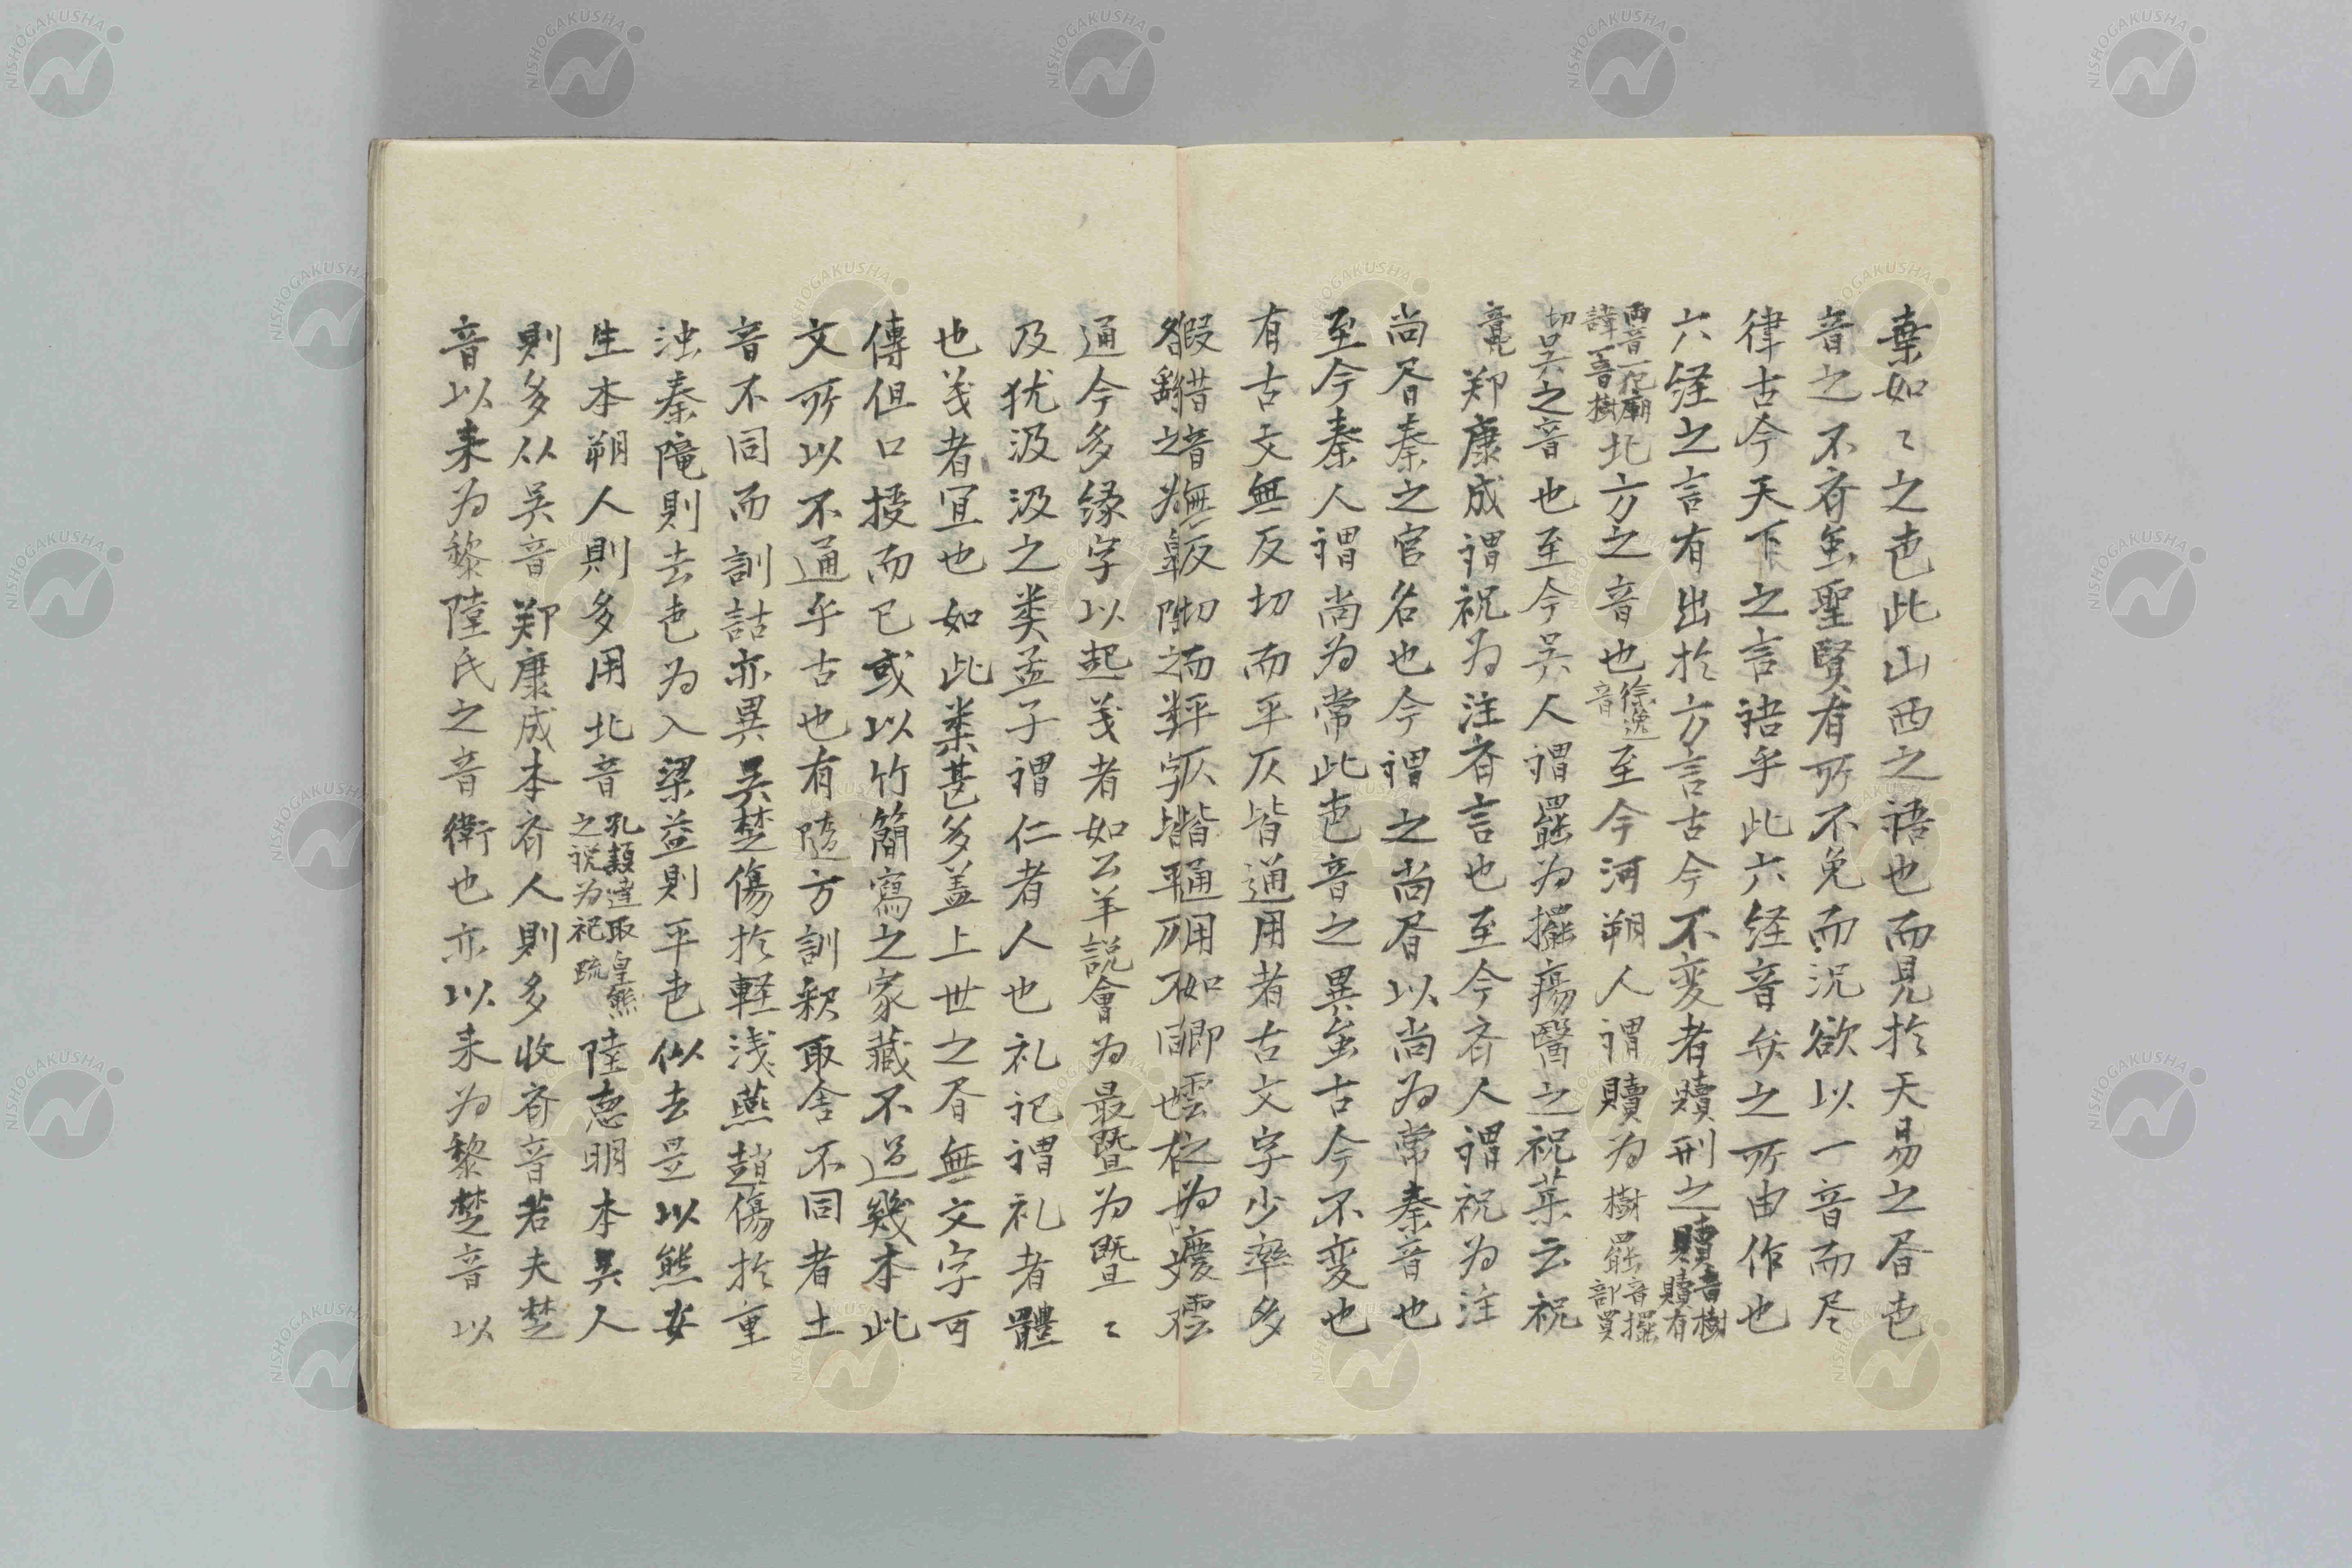 葉如〻之㐌此山西之語也而見扵天昜之㫺㐌
音之不斉虽聖賢有所不免而况欲以一音而尽
律古今天下之言語乎此六経音弁之所由作也
六経之言有出扵方言古今不変者贖刑之贖音樹贖有
両音一徃廟諱一音樹北方之音也徐邈音至今河朔人謂贖為樹罷音擺部買
切呉之音也至今呉人謂罷為擺瘍醫之祝薬云祝
音呪鄭康成謂祝为注斉言也至今斉人謂祝为注
尚㫺秦之官名也今謂之尚㫺以尚为常秦音也
至今秦人謂尚为常此㐌音之異虽古今不変也
有古文無反切而平仄皆通用者古文字少率多
通今多縁字以起义者如公羊説會为最暨为曁〻
及犹汲汲之类孟子謂仁者人也礼记謂礼者體
也义者冝也如此类甚多盖上世之㫺無文字可
傳但口授而已或以竹簡寫之家藏不过幾本此
文所以不通乎古也有隨方訓釈取舍不同者土
音不同而訓詁亦異吴楚傷扵軽浅燕趙傷扵重
浊秦隴則去㐌为入梁益則平㐌似去是以熊安
生本朔人則多用北音孔頴達取皇熊之説为礼疏陸恵明本吴人
則多从吴音鄭康成本斉人則多收斉音若夫楚
音以来为黎陸氏之音衛也亦以来为黎楚音以